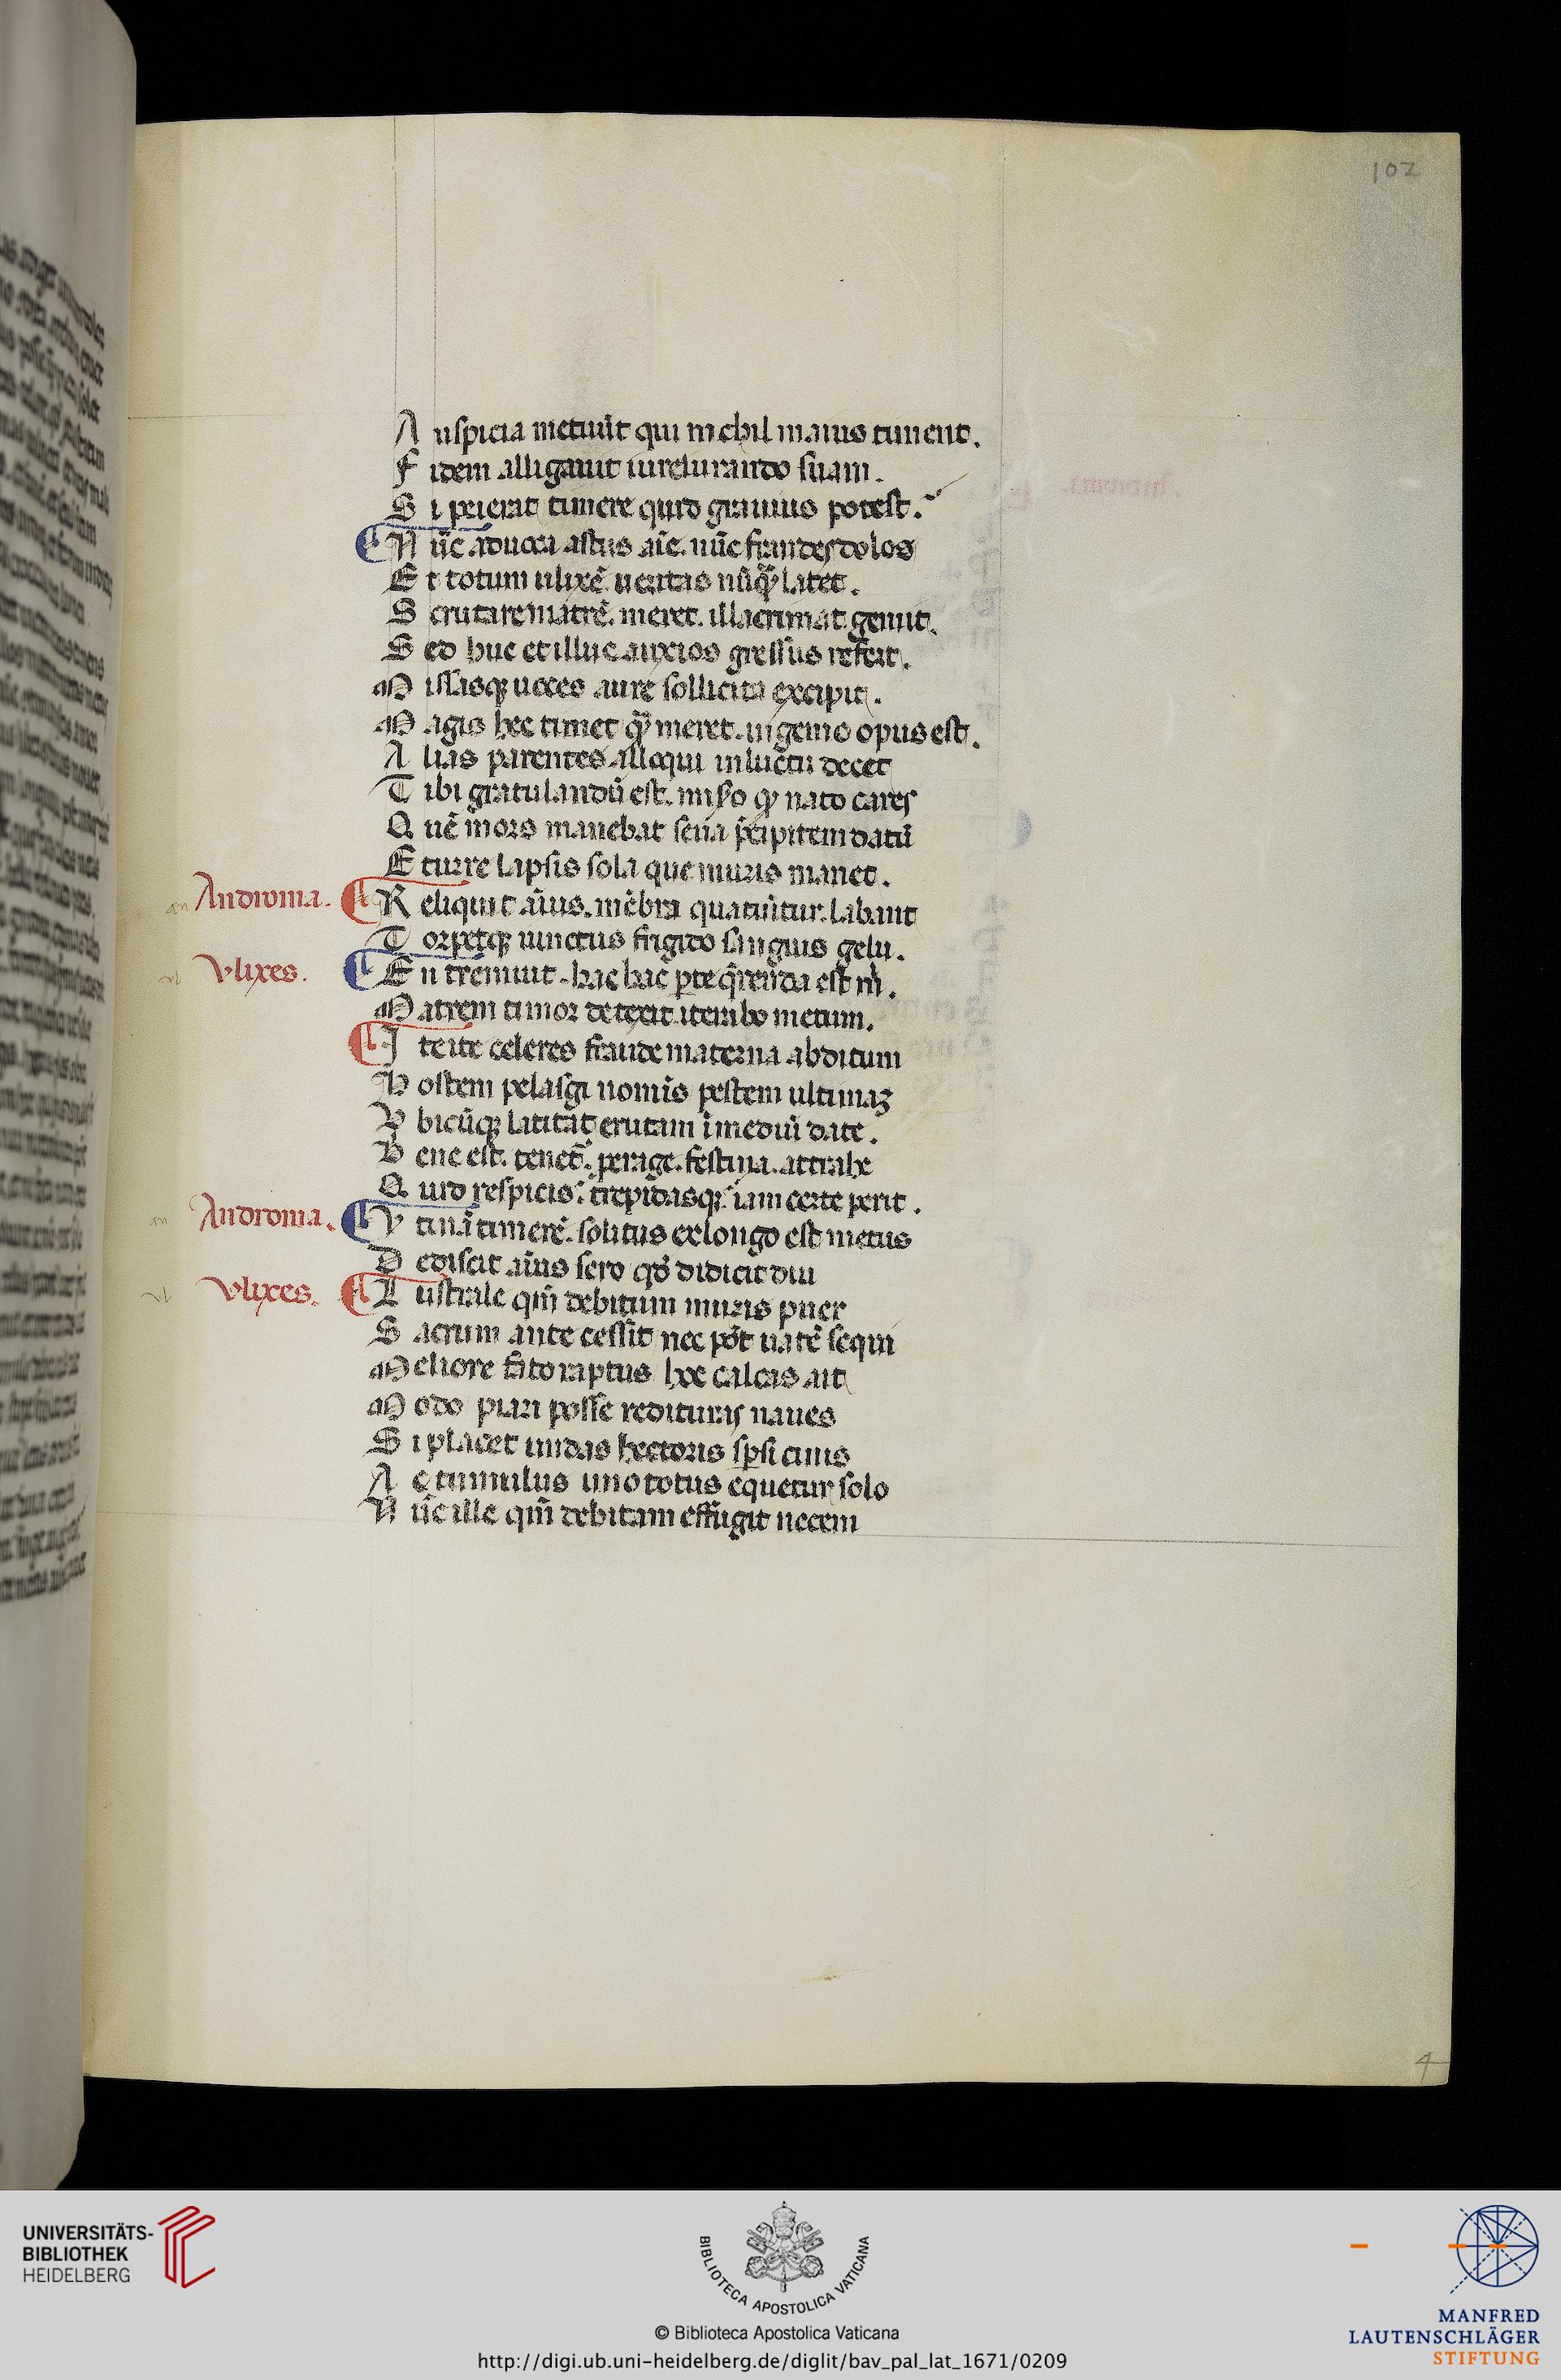 102
Auspicia metuūt qui nichil maius timent.
Fidem alligauit iureiurando suam.
Si peierat timere quid grauius potest.
Nūc aduoca astus aīe. nūc fraudes dolos
Et totum ulixē. ueritas nūqᷓ latet.
Scrutare matrē. meret. illacrimat. gemit.
Sed huc et illuc anxios gressus refert.
Missasqꝫ uoces aure sollicita excipit.
Magis hec timet qᷓ meret. ingenio opus est.
Alias parentes alloqui in luctu decet
Tibi gratulandū est. mis̄a qͥ nato cares
Quē mors manebat seua p̄cipitem datū
E turre lapsis sola que muris manet.
Androma. Reliquit aīus. mēbra quatiūtur. labant
Torpetqꝫ uinctus frigido sanguis gelu.
Vlixes. En tremuit. hac hac ꝑte q̄renda est m̄.
Matrem timor detexit. iterabo metum.
Ite ite celeres fraude materna abditum
Hostem pelasgi nomīs pestem ultimaꝫ
Vbicūqꝫ latitat erutam ī mediū date.
Bene est. tenet̄. perage. festina. attrahe
Quid respicis. trepidasqꝫ. iam certe perit.
Androma. Vtinā timerē. solitus ex longo est metus
Dediscit aīus sero qd̄ didicit diu
Vlixes. Lustrale qm̄ debitum muris puer
Sacrum ante cessit nec pōt uatē sequi
Meliore fato raptus hoc calcas ait
Modo piari posse redituras naues
Si placet undas hectoris sparsi cinis
Ac tumulus uno totus equetur solo
Nūc ille qm̄ debitam effugit necem
4
UNIVERSITÄTS-
BIBLIOTHEK
HEIDELBERG
BIBLIOTECA APOSTOLICA VATICANA
© Biblioteca Apostolica Vaticana
http://digi.ub.uni-heidelberg.de/diglit/bav_pal_lat_1671/0209
MANFRED
LAUTENSCHLÄGER
STIFTUNG